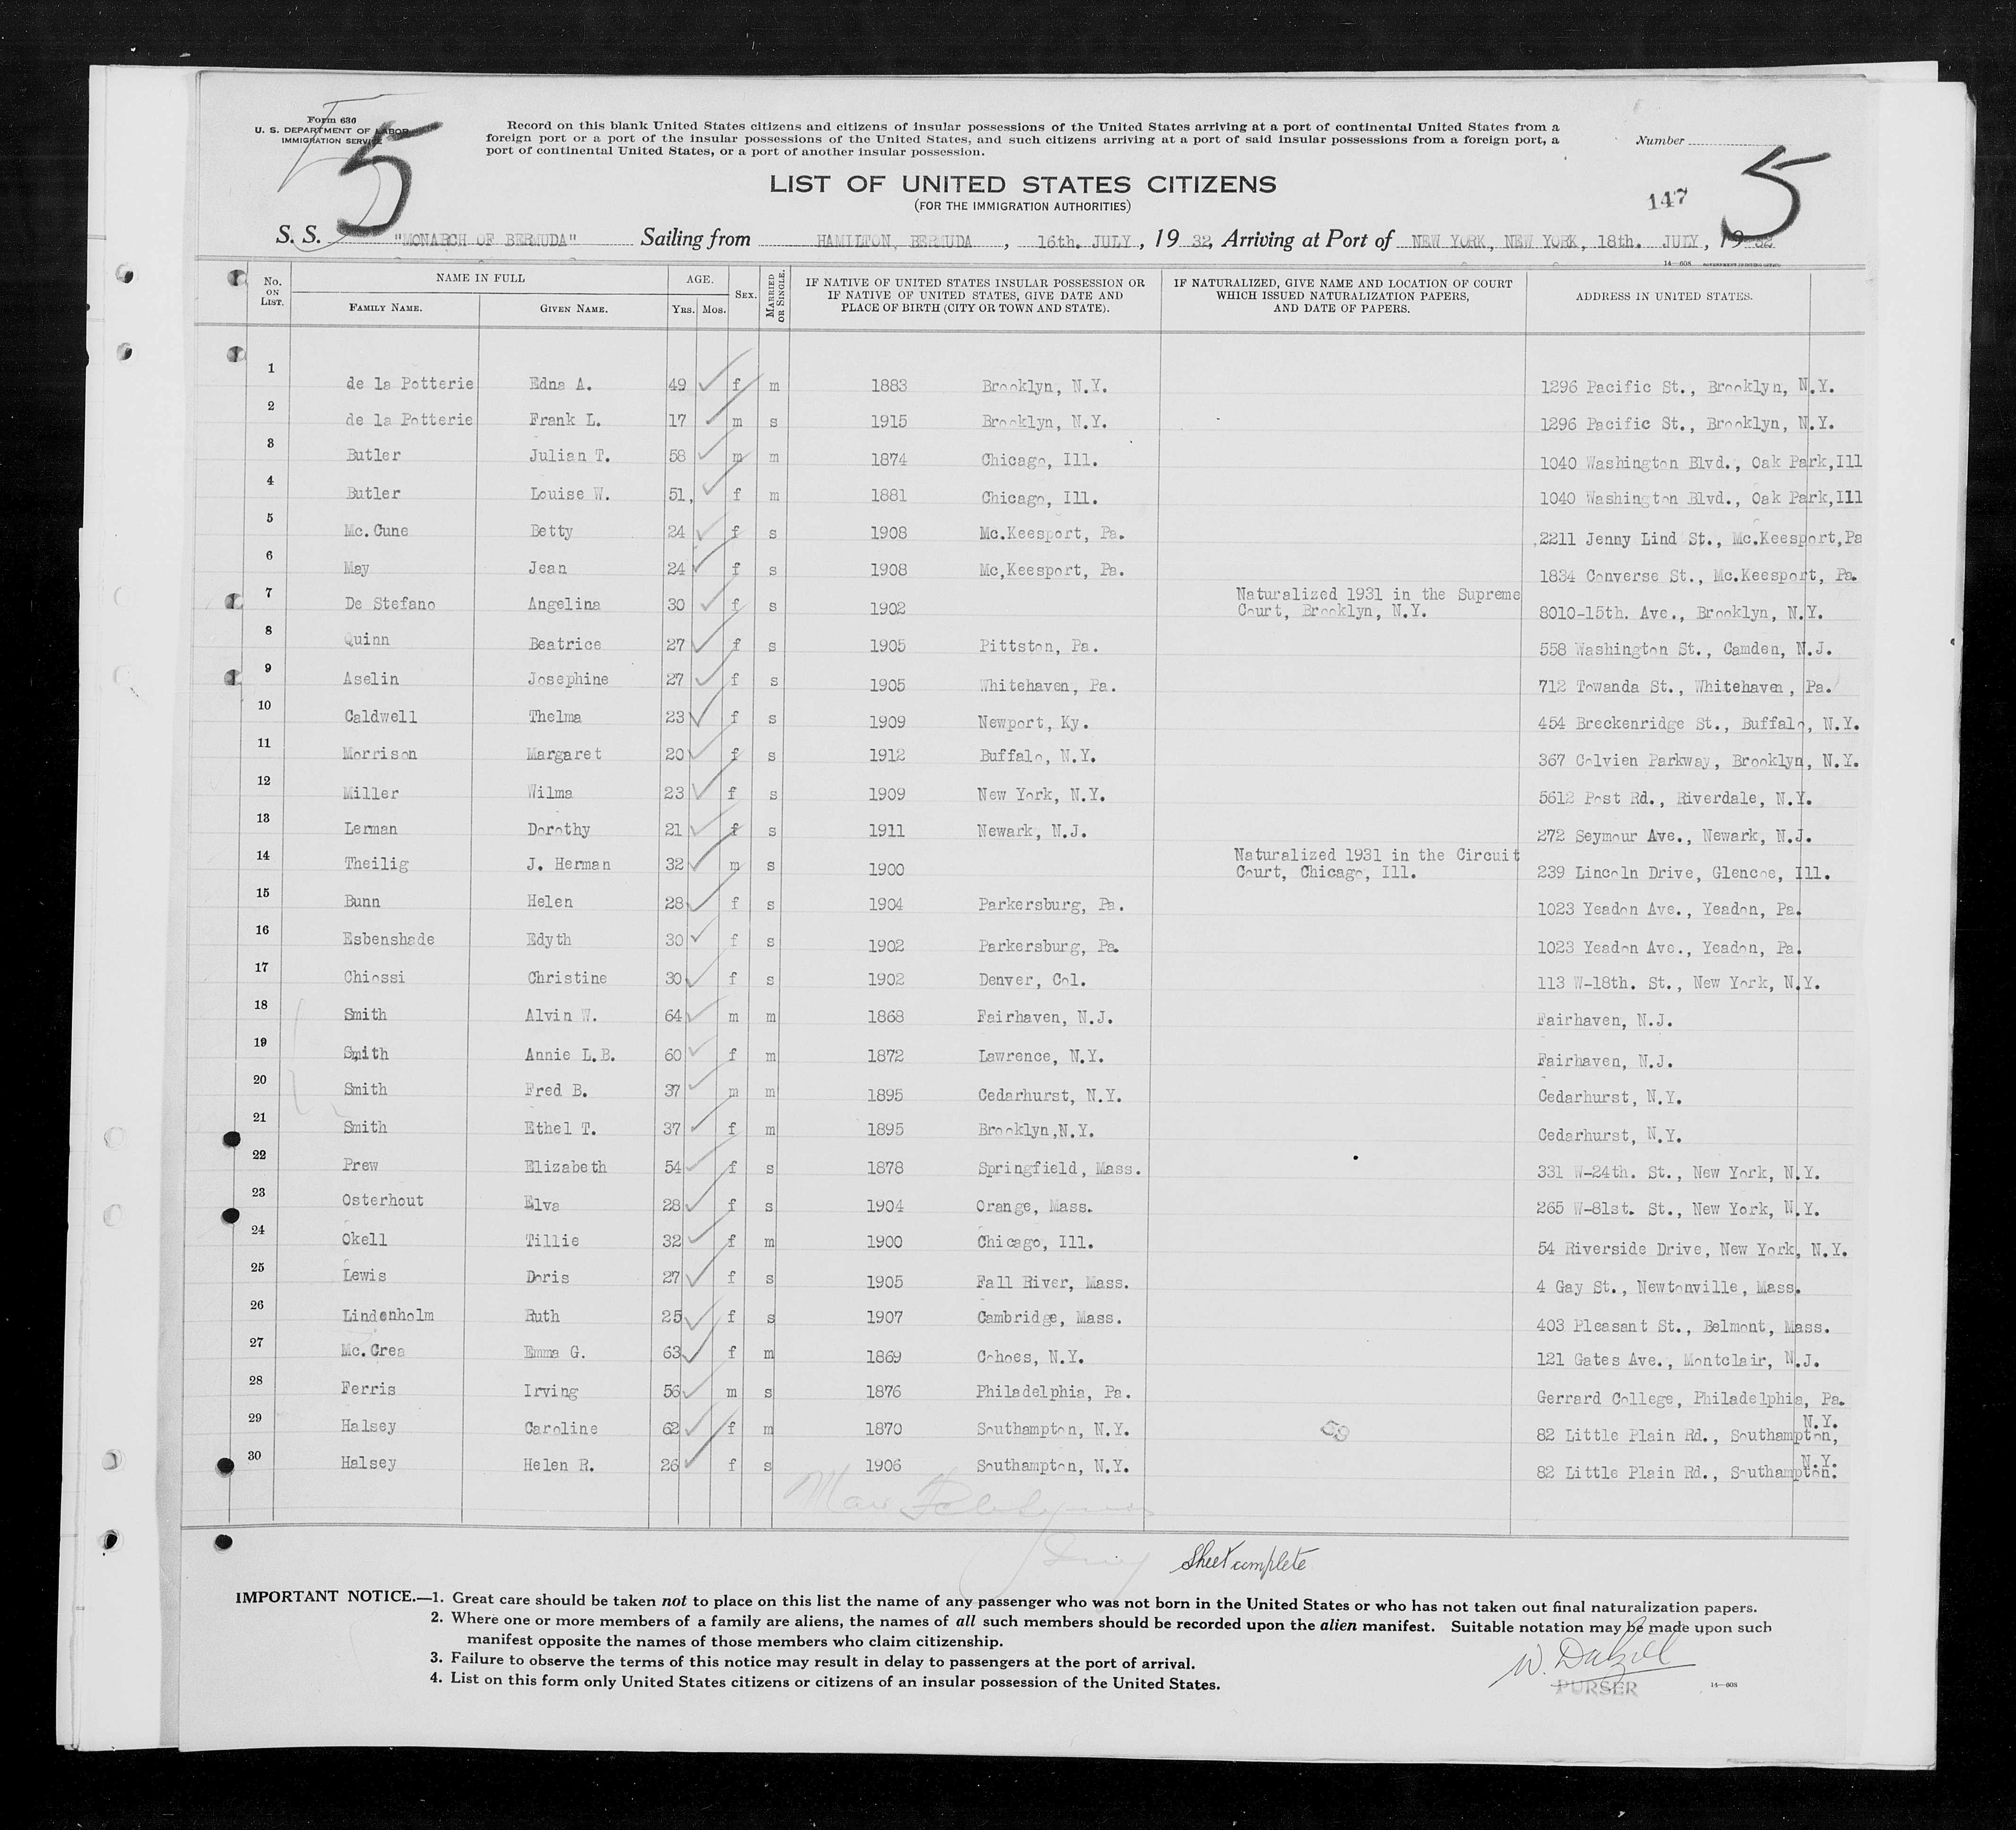 Form 630
U. S. DEPARTMENT OF LABOR
IMMIGRATION SERVICE
5
Record on this blank United States citizens and citizens of insular possessions of the United States arriving at a port of continental United States from a
foreign port or a port of the insular possessions of the United States, and such citizens arriving at a port of said insular possessions from a foreign port, a
port of continental United States, or a port of another insular possession.
Number
5
147
LIST OF UNITED STATES CITIZENS
(FOR THE IMMIGRATION AUTHORITIES)
S. S. "MONARCH OF BERMUDA" Sailing from HAMILTON, BERMUDA, 16th. JULY, 19 32, Arriving at Port of NEW YORK, NEW YORK, 18th. JULY, 19 32
14—608 GOVERNMENT PRINTING OFFICE
No. ON LIST. NAME IN FULL FAMILY NAME. GIVEN NAME. AGE. YRS. MOS. SEX. MARRIED OR SINGLE. IF NATIVE OF UNITED STATES INSULAR POSSESSION OR IF NATIVE OF UNITED STATES, GIVE DATE AND PLACE OF BIRTH (CITY OR TOWN AND STATE). IF NATURALIZED, GIVE NAME AND LOCATION OF COURT WHICH ISSUED NATURALIZATION PAPERS, AND DATE OF PAPERS. ADDRESS IN UNITED STATES.
1 de la Potterie Edna A. 49 f m 1883 Brooklyn, N.Y. 1296 Pacific St., Brooklyn, N.Y.
2 de la Potterie Frank L. 17 m s 1915 Brooklyn, N.Y. 1296 Pacific St., Brooklyn, N.Y.
3 Butler Julian T. 58 m m 1874 Chicago, Ill. 1040 Washington Blvd., Oak Park,Ill
4 Butler Louise W. 51, f m 1881 Chicago, Ill. 1040 Washington Blvd., Oak Park,Ill
5 Mc.Cune Betty 24 f s 1908 Mc.Keesport, Pa. 2211 Jenny Lind St., Mc.Keesport,Pa
6 May Jean 24 f s 1908 Mc,Keesport, Pa. 1834 Converse St., Mc.Keesport, Pa.
7 De Stefano Angelina 30 f s 1902 Naturalized 1931 in the Supreme Court, Brooklyn, N.Y. 8010-15th. Ave., Brooklyn, N.Y.
8 Quinn Beatrice 27 f s 1905 Pittston, Pa. 558 Washington St., Camden, N.J.
9 Aselin Josephine 27 f s 1905 Whitehaven, Pa. 712 Towanda St., Whitehaven, Pa.
10 Caldwell Thelma 23 f s 1909 Newport, Ky. 454 Breckenridge St., Buffalo, N.Y.
11 Morrison Margaret 20 f s 1912 Buffalo, N.Y. 367 Colvien Parkway, Brooklyn, N.Y.
12 Miller Wilma 23 f s 1909 New York, N.Y. 5612 Post Rd., Riverdale, N.Y.
13 Lerman Dorothy 21 f s 1911 Newark, N.J. 272 Seymour Ave., Newark, N.J.
14 Theilig J. Herman 32 m s 1900 Naturalized 1931 in the Circuit Court, Chicago, Ill. 239 Lincoln Drive, Glencoe, Ill.
15 Bunn Helen 28 f s 1904 Parkersburg, Pa. 1023 Yeadon Ave., Yeadon, Pa.
16 Esbenshade Edyth 30 f s 1902 Parkersburg, Pa. 1023 Yeadon Ave., Yeadon, Pa.
17 Chiossi Christine 30 f s 1902 Denver, Col. 113 W-18th. St., New York, N.Y.
18 Smith Alvin W. 64 m m 1868 Fairhaven, N.J. Fairhaven, N.J.
19 Smith Annie L.B. 60 f m 1872 Lawrence, N.Y. Fairhaven, N.J.
20 Smith Fred B. 37 m m 1895 Cedarhurst, N.Y. Cedarhurst, N.Y.
21 Smith Ethel T. 37 f m 1895 Brooklyn,N.Y. Cedarhurst, N.Y.
22 Prew Elizabeth 54 f s 1878 Springfield, Mass. 331 W-24th. St., New York, N.Y.
23 Osterhout Elva 28 f s 1904 Orange, Mass. 265 W-81st. St., New York, N.Y.
24 Okell Tillie 32 f m 1900 Chicago, Ill. 54 Riverside Drive, New York, N.Y.
25 Lewis Doris 27 f s 1905 Fall River, Mass. 4 Gay St., Newtonville, Mass.
26 Lindenholm Ruth 25 f s 1907 Cambridge, Mass. 403 Pleasant St., Belmont, Mass.
27 Mc.Crea Emma G. 63 f m 1869 Cohoes, N.Y. 121 Gates Ave., Montclair, N.J.
28 Ferris Irving 56 m s 1876 Philadelphia, Pa. Gerrard College, Philadelphia, Pa.
29 Halsey Caroline 62 f m 1870 Southampton, N.Y. 82 Little Plain Rd., Southampton, N.Y.
30 Halsey Helen R. 26 f s 1906 Southampton, N.Y. 82 Little Plain Rd., Southampton. N.Y.
Sheet complete
IMPORTANT NOTICE.—1. Great care should be taken not to place on this list the name of any passenger who was not born in the United States or who has not taken out final naturalization papers.
2. Where one or more members of a family are aliens, the names of all such members should be recorded upon the alien manifest. Suitable notation may be made upon such
manifest opposite the names of those members who claim citizenship.
3. Failure to observe the terms of this notice may result in delay to passengers at the port of arrival.
4. List on this form only United States citizens or citizens of an insular possession of the United States.
W. Dalzell
PURSER
14—608